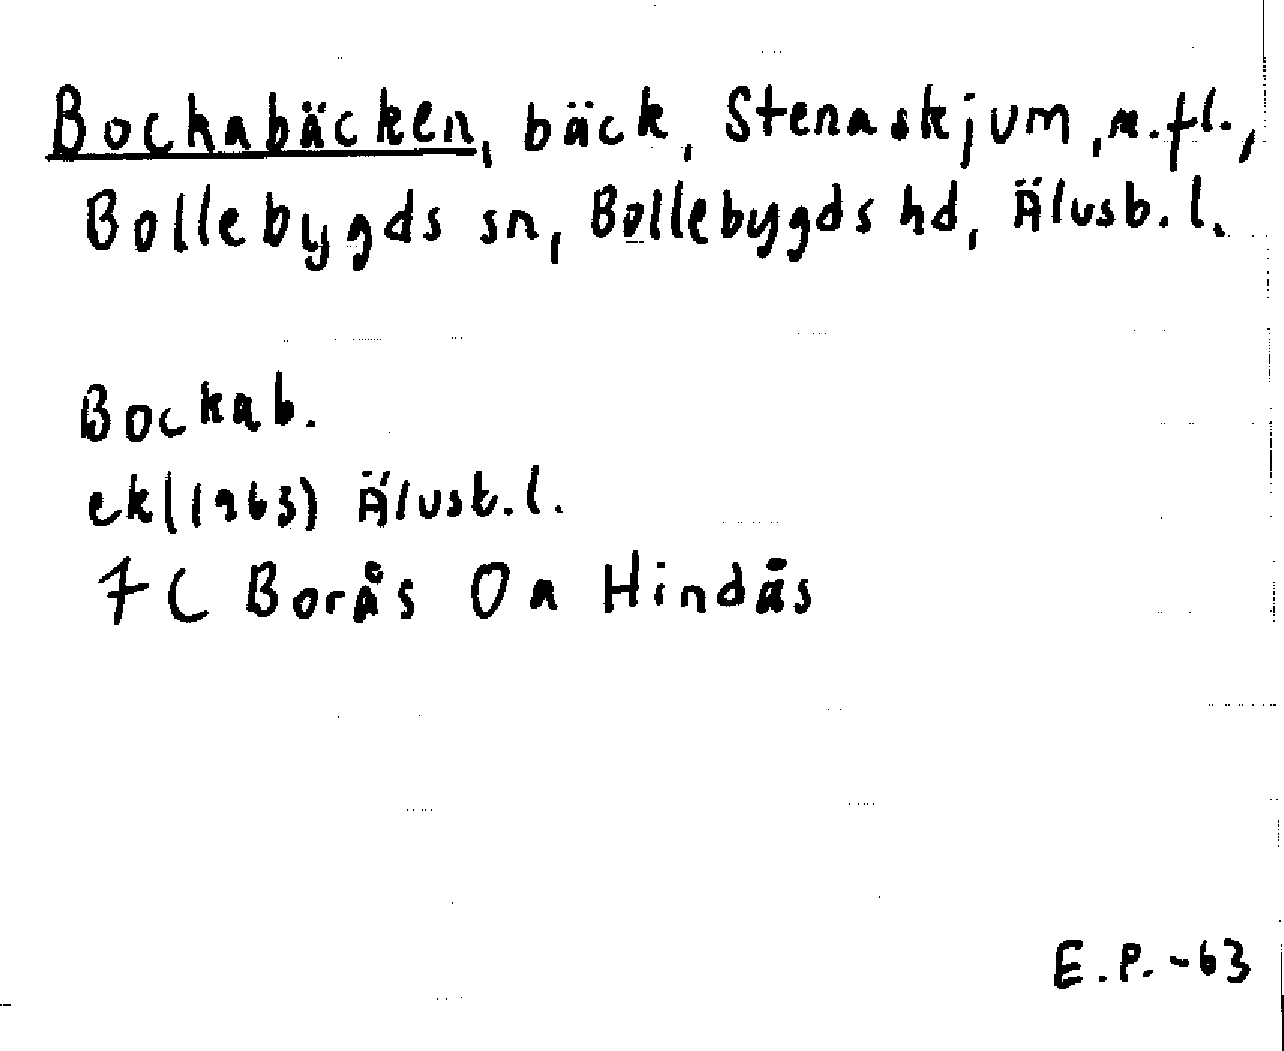 Bockabäcken, bäck, Stenaskjum, m.fl.,
Bollebygds sn, Bollebygds hd, Älvsb.l.
Bockab.
ekl(1963) Älvsb.l.
7C Borås 0a Hindås
E.P.-63